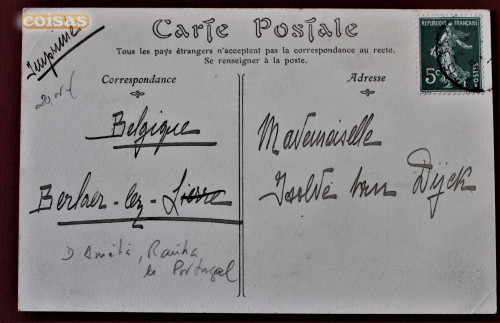 coisas
Imprimé
Carte Postale
Tous les pays étrangers n'acceptent pas la correspondance au recto.
Se renseigner à la poste.
Correspondance
Adresse
Belgique
Berlaer-lez-Lierre
Mademoiselle
Isolde van Dÿck
D Amélia, Rainha
de Portugal
5c
POSTES